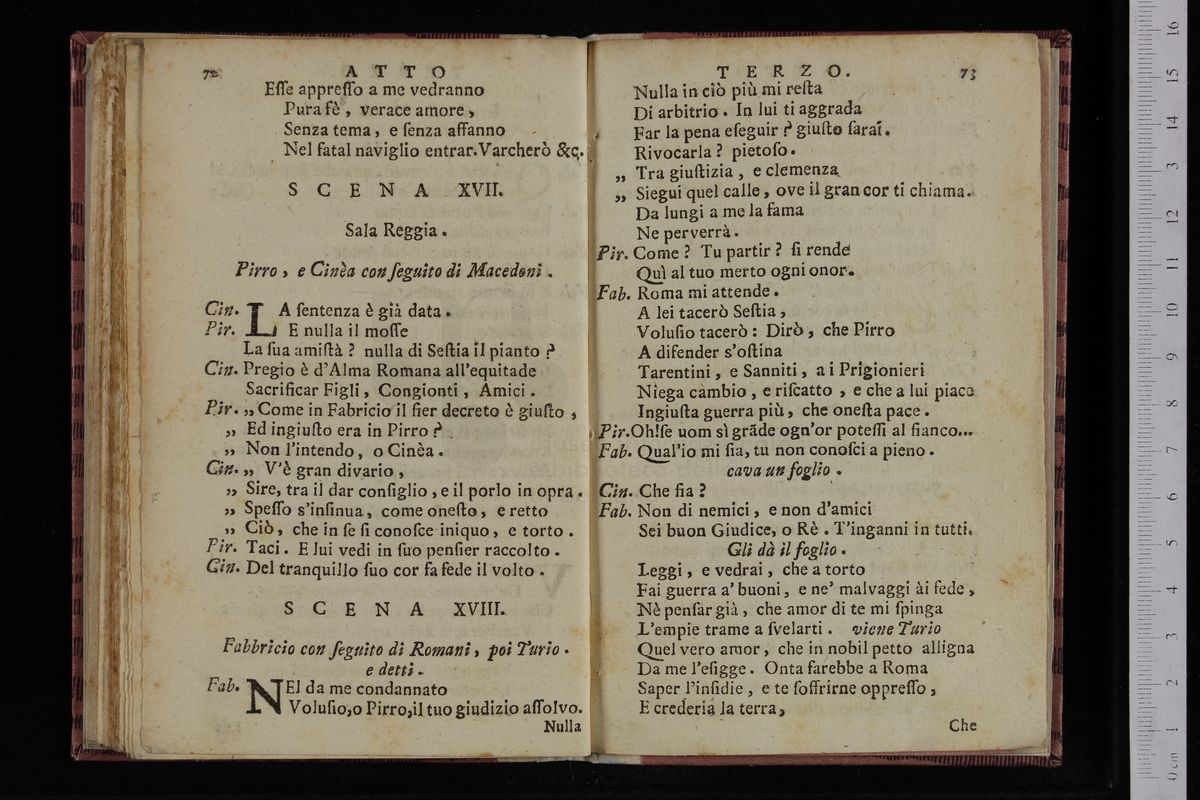 72 ATTO
Eſſe appreſſo a me vedranno
Pura fè, verace amore,
Senza tema, e ſenza affanno
Nel fatal naviglio entrar. Varcherò &c.
SCENA XVII.
Sala Reggia.
Pirro, e Cinèa con ſeguito di Macedoni.
Cin. LA ſentenza è già data.
Pir. E nulla il moſſe
La ſua amiſtà? nulla di Seſtia il pianto?
Cin. Pregio è d'Alma Romana all'equitade
Sacrificar Figli, Congionti, Amici.
Pir. „ Come in Fabricio il fier decreto è giuſto,
„ Ed ingiuſto era in Pirro?
„ Non l'intendo, o Cinèa.
Cin. „ V'è gran divario,
„ Sire, tra il dar conſiglio, e il porlo in opra.
„ Speſſo s'inſinua, come oneſto, e retto
„ Ciò, che in ſe ſi conoſce iniquo, e torto.
Pir. Taci. E lui vedi in ſuo penſier raccolto.
Cin. Del tranquillo ſuo cor fa fede il volto.
SCENA XVIII.
Fabbricio con ſeguito di Romani, poi Turio.
e detti.
Fab. NEl da me condannato
Voluſio, o Pirro, il tuo giudizio aſſolvo.
Nulla
TERZO. 73
Nulla in ciò più mi reſta
Di arbitrio. In lui ti aggrada
Far la pena eſeguir? giuſto ſarai.
Rivocarla? pietoſo.
„ Tra giuſtizia, e clemenza
„ Siegui quel calle, ove il gran cor ti chiama.
Da lungi a me la fama
Ne perverrà.
Pir. Come? Tu partir? ſi rende
Quì al tuo merto ogni onor.
Fab. Roma mi attende.
A lei tacerò Seſtia,
Voluſio tacerò: Dirò, che Pirro
A difender s'oſtina
Tarentini, e Sanniti, a i Prigionieri
Niega cambio, e riſcatto, e che a lui piace
Ingiuſta guerra più, che oneſta pace.
Pir. Oh! ſe uom sì grãde ogn'or poteſſi al fianco...
Fab. Qual'io mi ſia, tu non conoſci a pieno.
cava un foglio.
Cin. Che fia?
Fab. Non di nemici, e non d'amici
Sei buon Giudice, o Rè. T'inganni in tutti.
Gli dà il foglio.
Leggi, e vedrai, che a torto
Fai guerra a' buoni, e ne' malvaggi ài fede,
Nè penſar già, che amor di te mi ſpinga
L'empie trame a ſvelarti. viene Turio
Quel vero amor, che in nobil petto alligna
Da me l'eſigge. Onta farebbe a Roma
Saper l'inſidie, e te ſoffrirne oppreſſo,
E crederia la terra,
Che